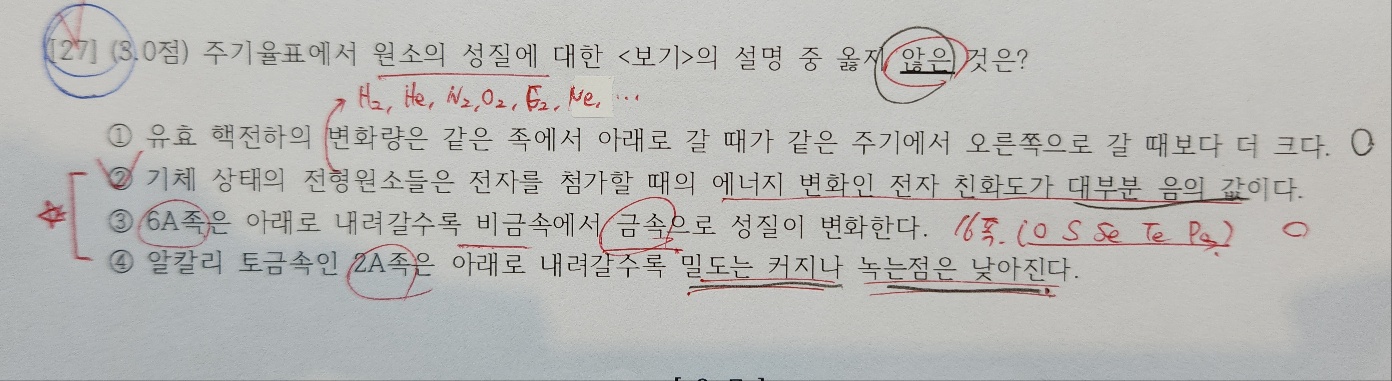 [27] (3.0점) 주기율표에서 원소의 성질에 대한 <보기>의 설명 중 옳지 않은 것은?
H₂, He, N₂, O₂, F₂, Ne, ...
① 유효 핵전하의 변화량은 같은 족에서 아래로 갈 때가 같은 주기에서 오른쪽으로 갈 때보다 더 크다. O
② 기체 상태의 전형원소들은 전자를 첨가할 때의 에너지 변화인 전자 친화도가 대부분 음의 값이다.
③ 6A족은 아래로 내려갈수록 비금속에서 금속으로 성질이 변화한다. 16족. (O S Se Te Po) O
④ 알칼리 토금속인 2A족은 아래로 내려갈수록 밀도는 커지나 녹는점은 낮아진다.